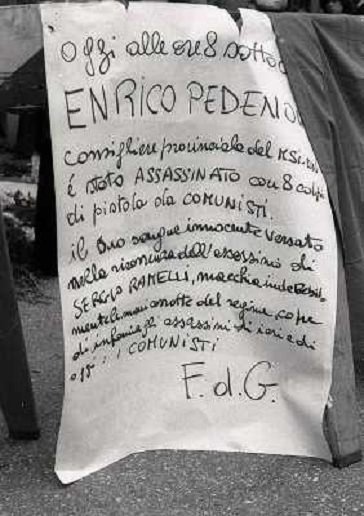 Oggi alle ore 8 sotto
ENRICO PEDENO
consigliere provinciale del MSI-DN
é stato ASSASSINATO con 8 colpi
di pistola da COMUNISTI.
il suo sangue innocente versato
nella ricorrenza dell'assassinio di
SERGIO RAMELLI, macchia indelebil-
mente le mani del regime, copre
di infamia gli assassini di ieri e di
oggi : i COMUNISTI
F.d.G.